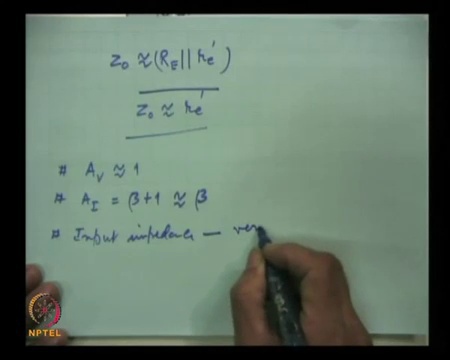 Z₀ ≈ (R_E || r_e')
Z₀ ≈ r_e'
# A_V ≈ 1
# A_I = β+1 ≈ β
# Input impedance — ver
NPTEL